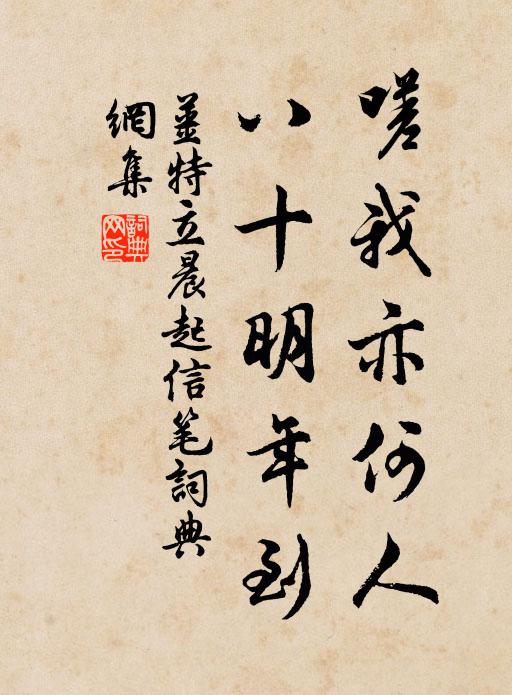 嗟我亦何人
八十明年到
姜特立晨起信笔詞典
網集
詞典網印